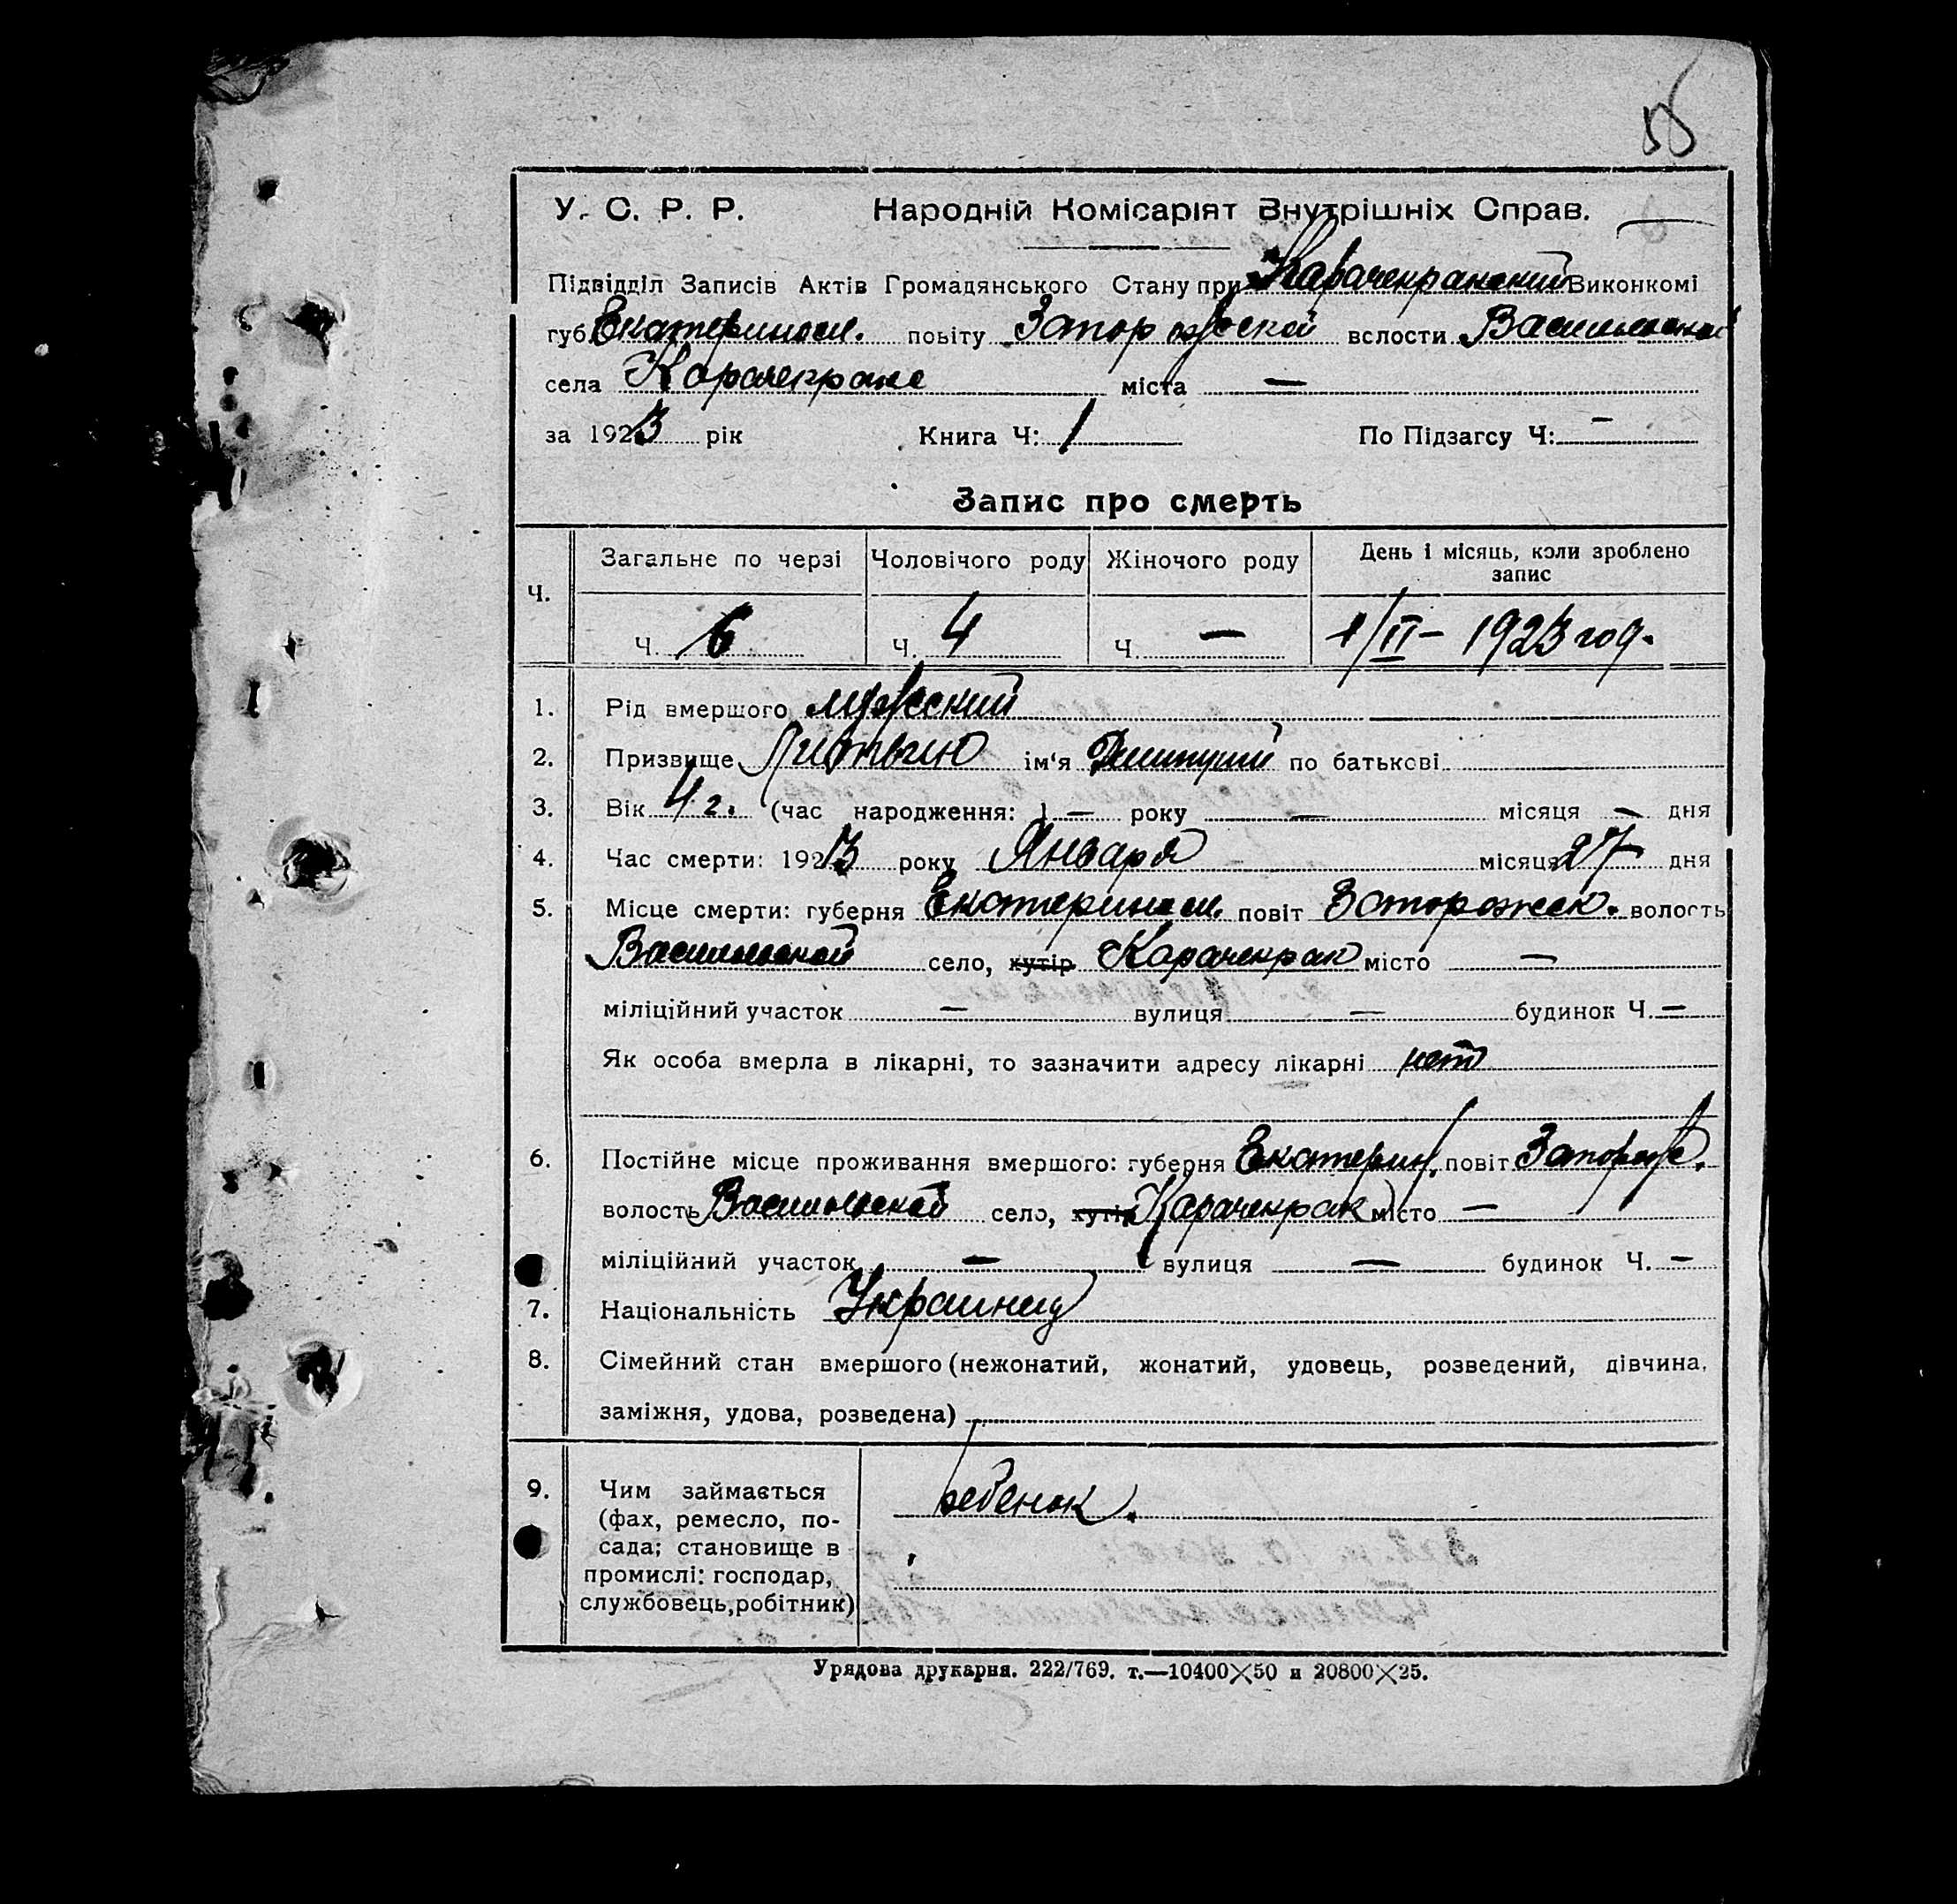 У. С. Р. Р. Народній Комісаріят Внутрішніх Справ.
Підвідділ Записів Актів Громадянського Стану при Карачекракский Виконкомі
губ. Екатеринсл. повіту Запорожской волости Васильевской
села Карачекраке міста —
за 1923 рік Книга Ч: 1 По Підзагсу Ч: —
Запис про смерть
Ч. Загальне по черзі Чоловічого роду Жіночого роду День і місяць, коли зроблено запис
Ч. 6 Ч. 4 Ч. — 1/II – 1923 год.
1. Рід вмершого мужский
2. Призвище ім'я Дмитрий по батькові
3. Вік 4 г. (час народження: 1 — року — місяця — дня
4. Час смерти: 1923 року Января місяця 27 дня
5. Місце смерти: губерня Екатеринсл. повіт Запорожск. волость
Васильевской село, хутір Карачекрак місто —
міліційний участок — вулиця — будинок Ч. —
Як особа вмерла в лікарні, то зазначити адресу лікарні нет
6. Постійне місце проживання вмершого: губерня Екатерин. повіт Запорож.
волость Васильевской село, хутір Карачекрак місто —
міліційний участок — вулиця — будинок Ч. —
7. Національність Украинец
8. Сімейний стан вмершого (нежонатий, жонатий, удовець, розведений, дівчина,
заміжня, удова, розведена)
9. Чим займається Ребенок.
(фах, ремесло, по-
сада; становище в
промислі: господар,
службовець, робітник)
Урядова друкарня. 222/769. т.—10400×50 и 20800×25.